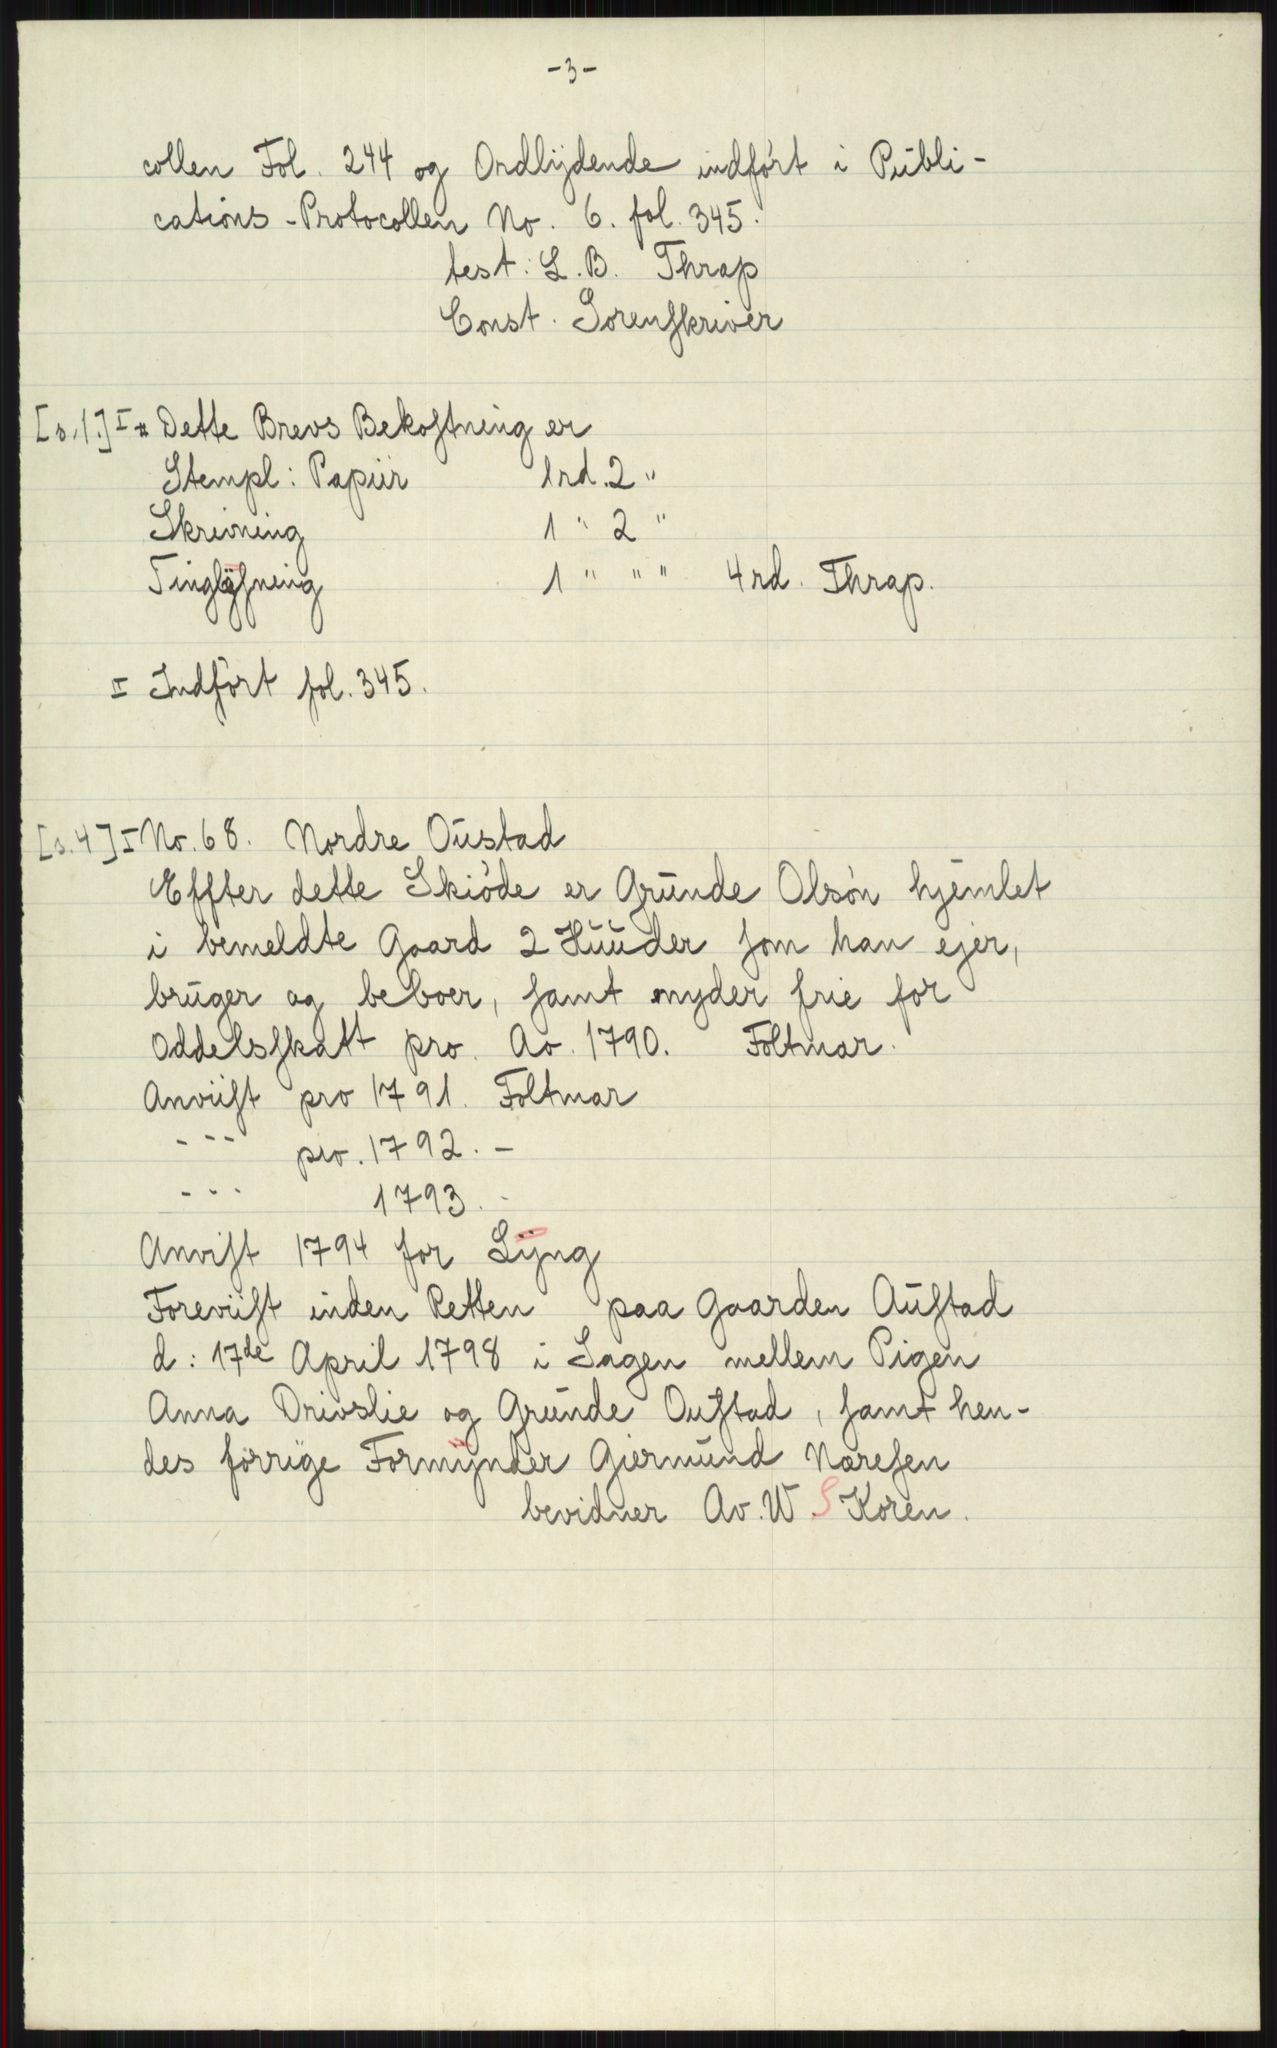 -3-
collen Fol. 244 og Ordlÿdende indført i Publi-
cations-Protocollen No. 6. fol. 345.
test: L. B. Thrap
Const. Sorenſkriver
[s.1.] I * Dette Brevs Bekoſtning er
Stempl: Papiir 1rd. 2 "
Skrivning 1 " 2 "
Tinglÿſning 1 " " " 4 rd. Thrap.
I Indført fol. 345.
[s.4] I No. 68. Nordre Oustad
Effter dette Skiøde er Grunde Olsøn hjemlet
i bemeldte Gaard 2 Huuder ſom han ejer,
bruger og beboer, ſamt nyder frie for
Oddelsſkatt pro. Ao. 1790. Foltmar.
Anviiſt pro 1791. Foltmar
- - - pro. 1792. -
- - - 1793. -
Anviſt 1794 for Lÿng
Foreviiſt inden Retten paa Gaarden Auſtad
d: 17de April 1798 i Sagen mellem Pigen
Anna Drivslie og Grunde Ouſtad, ſamt hen-
des forrige Formÿnder Giermund Næreſen
bevidner Av. W S Koren.